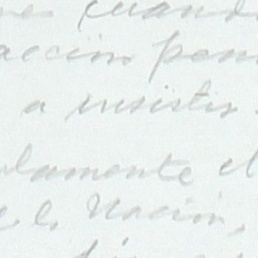 cuando
acción pen
a insistir
lamente el
e la Nación,